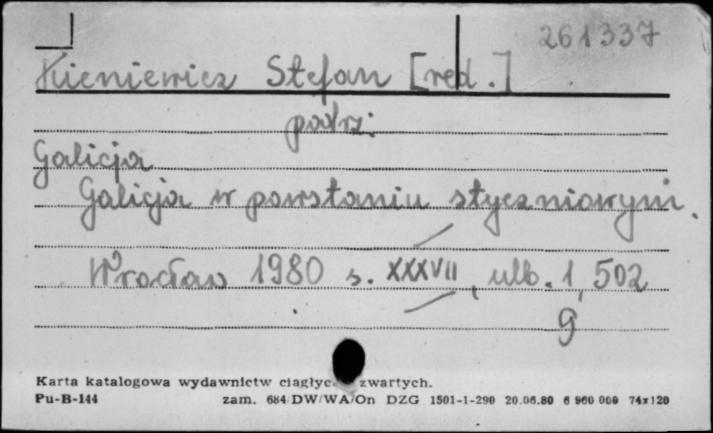 261337
Kieniewicz Stefan [red.]
patrz:
Galicja
Galicja w powstaniu styczniowym.
Wrocław 1980 s. XXXVII, ulb. 1, 502
9
Karta katalogowa wydawnictw ciągłyc zwartych.
Pu-B-144 zam. 684/DW/WA/On DZG 1501-1-290 20.06.80 6 960 000 74x120